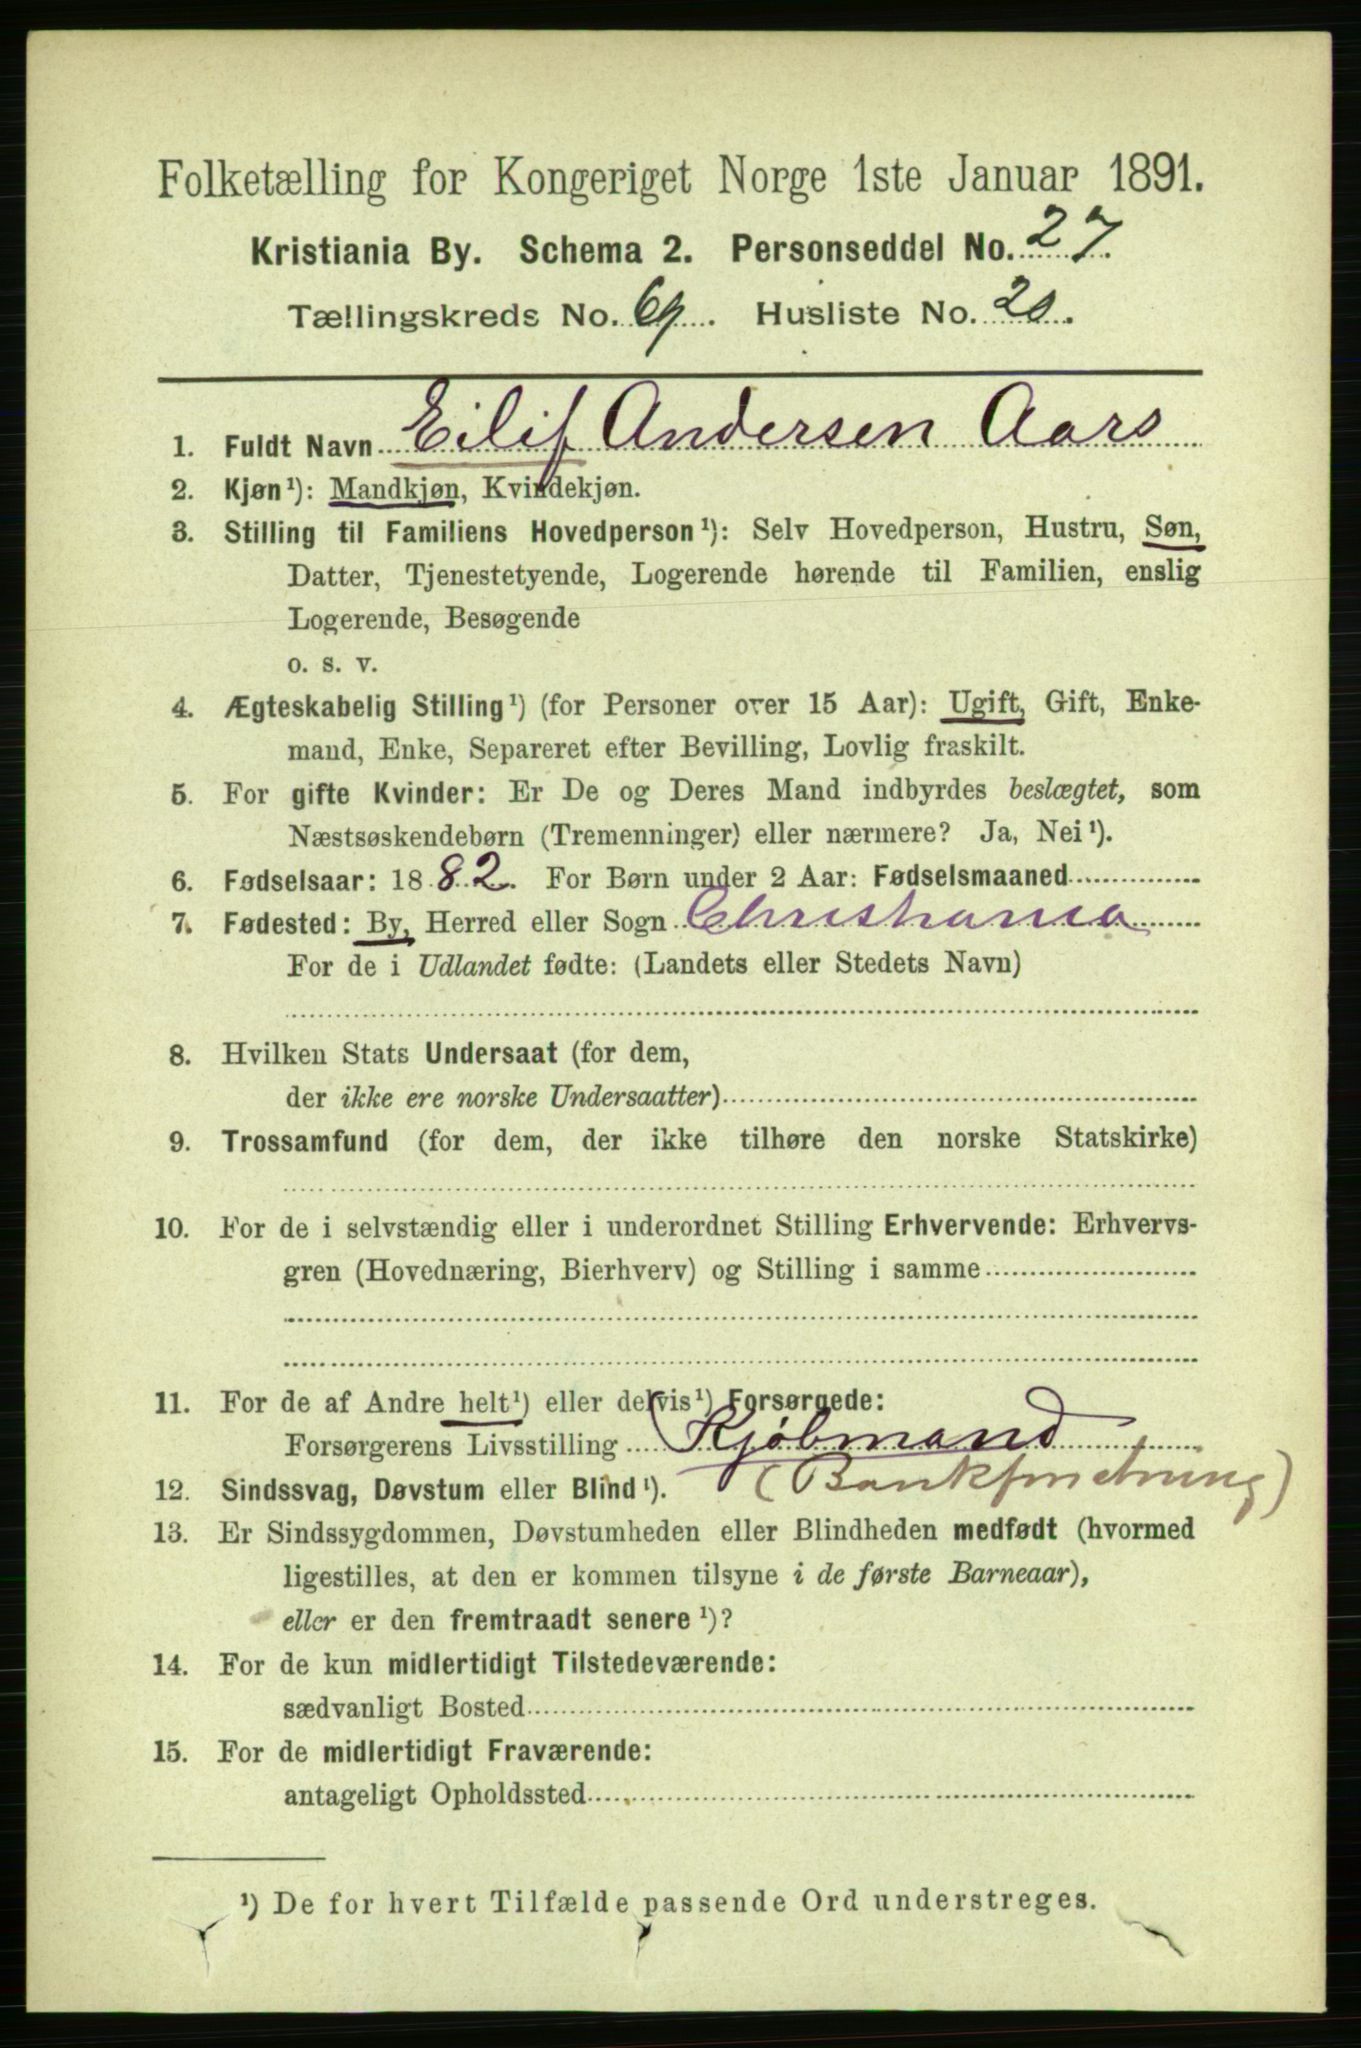 Folketælling for Kongeriget Norge 1ste Januar 1891.
Kristiania By. Schema 2. Personseddel No. 27.
Tællingskreds No. 69. Husliste No. 20.
1. Fuldt Navn Eilif Andersen Aars
2. Kjøn¹): Mandkjøn, Kvindekjøn.
3. Stilling til Familiens Hovedperson¹): Selv Hovedperson, Hustru, Søn,
Datter, Tjenestetyende, Logerende hørende til Familien, enslig
Logerende, Besøgende
o. s. v.
4. Ægteskabelig Stilling¹) (for Personer over 15 Aar): Ugift, Gift, Enke-
mand, Enke, Separeret efter Bevilling, Lovlig fraskilt.
5. For gifte Kvinder: Er De og Deres Mand indbyrdes beslægtet, som
Næstsøskendebørn (Tremenninger) eller nærmere? Ja, Nei¹).
6. Fødselsaar: 1882. For Børn under 2 Aar: Fødselsmaaned
7. Fødested: By, Herred eller Sogn Christiania
For de i Udlandet fødte: (Landets eller Stedets Navn)
8. Hvilken Stats Undersaat (for dem,
der ikke ere norske Undersaatter)
9. Trossamfund (for dem, der ikke tilhøre den norske Statskirke)
10. For de i selvstændig eller i underordnet Stilling Erhvervende: Erhvervs-
gren (Hovednæring, Bierhverv) og Stilling i samme
11. For de af Andre helt¹) eller delvis¹) Forsørgede:
Forsørgerens Livsstilling Kjøbmand
(Bankforretning)
12. Sindssvag, Døvstum eller Blind¹).
13. Er Sindssygdommen, Døvstumheden eller Blindheden medfødt (hvormed
ligestilles, at den er kommen tilsyne i de første Barneaar),
eller er den fremtraadt senere¹)?
14. For de kun midlertidigt Tilstedeværende:
sædvanligt Bosted
15. For de midlertidigt Fraværende:
antageligt Opholdssted
¹) De for hvert Tilfælde passende Ord understreges.